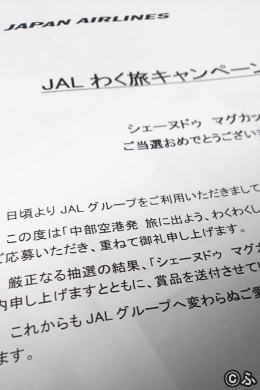 JAPAN AIRLINES
JAL わく旅キャンペーン
シェーヌドゥ マグカッ
ご当選おめでとうございま
日頃より JAL グループをご利用いただきまして
この度は「中部空港発 旅に出よう、わくわくし
ご応募いただき、重ねて御礼申し上げます。
厳正なる抽選の結果、「シェーヌドゥ マグカ
内申し上げますとともに、賞品を送付させてい
これからも JAL グループへ変わらぬご愛
ます。
©ふ